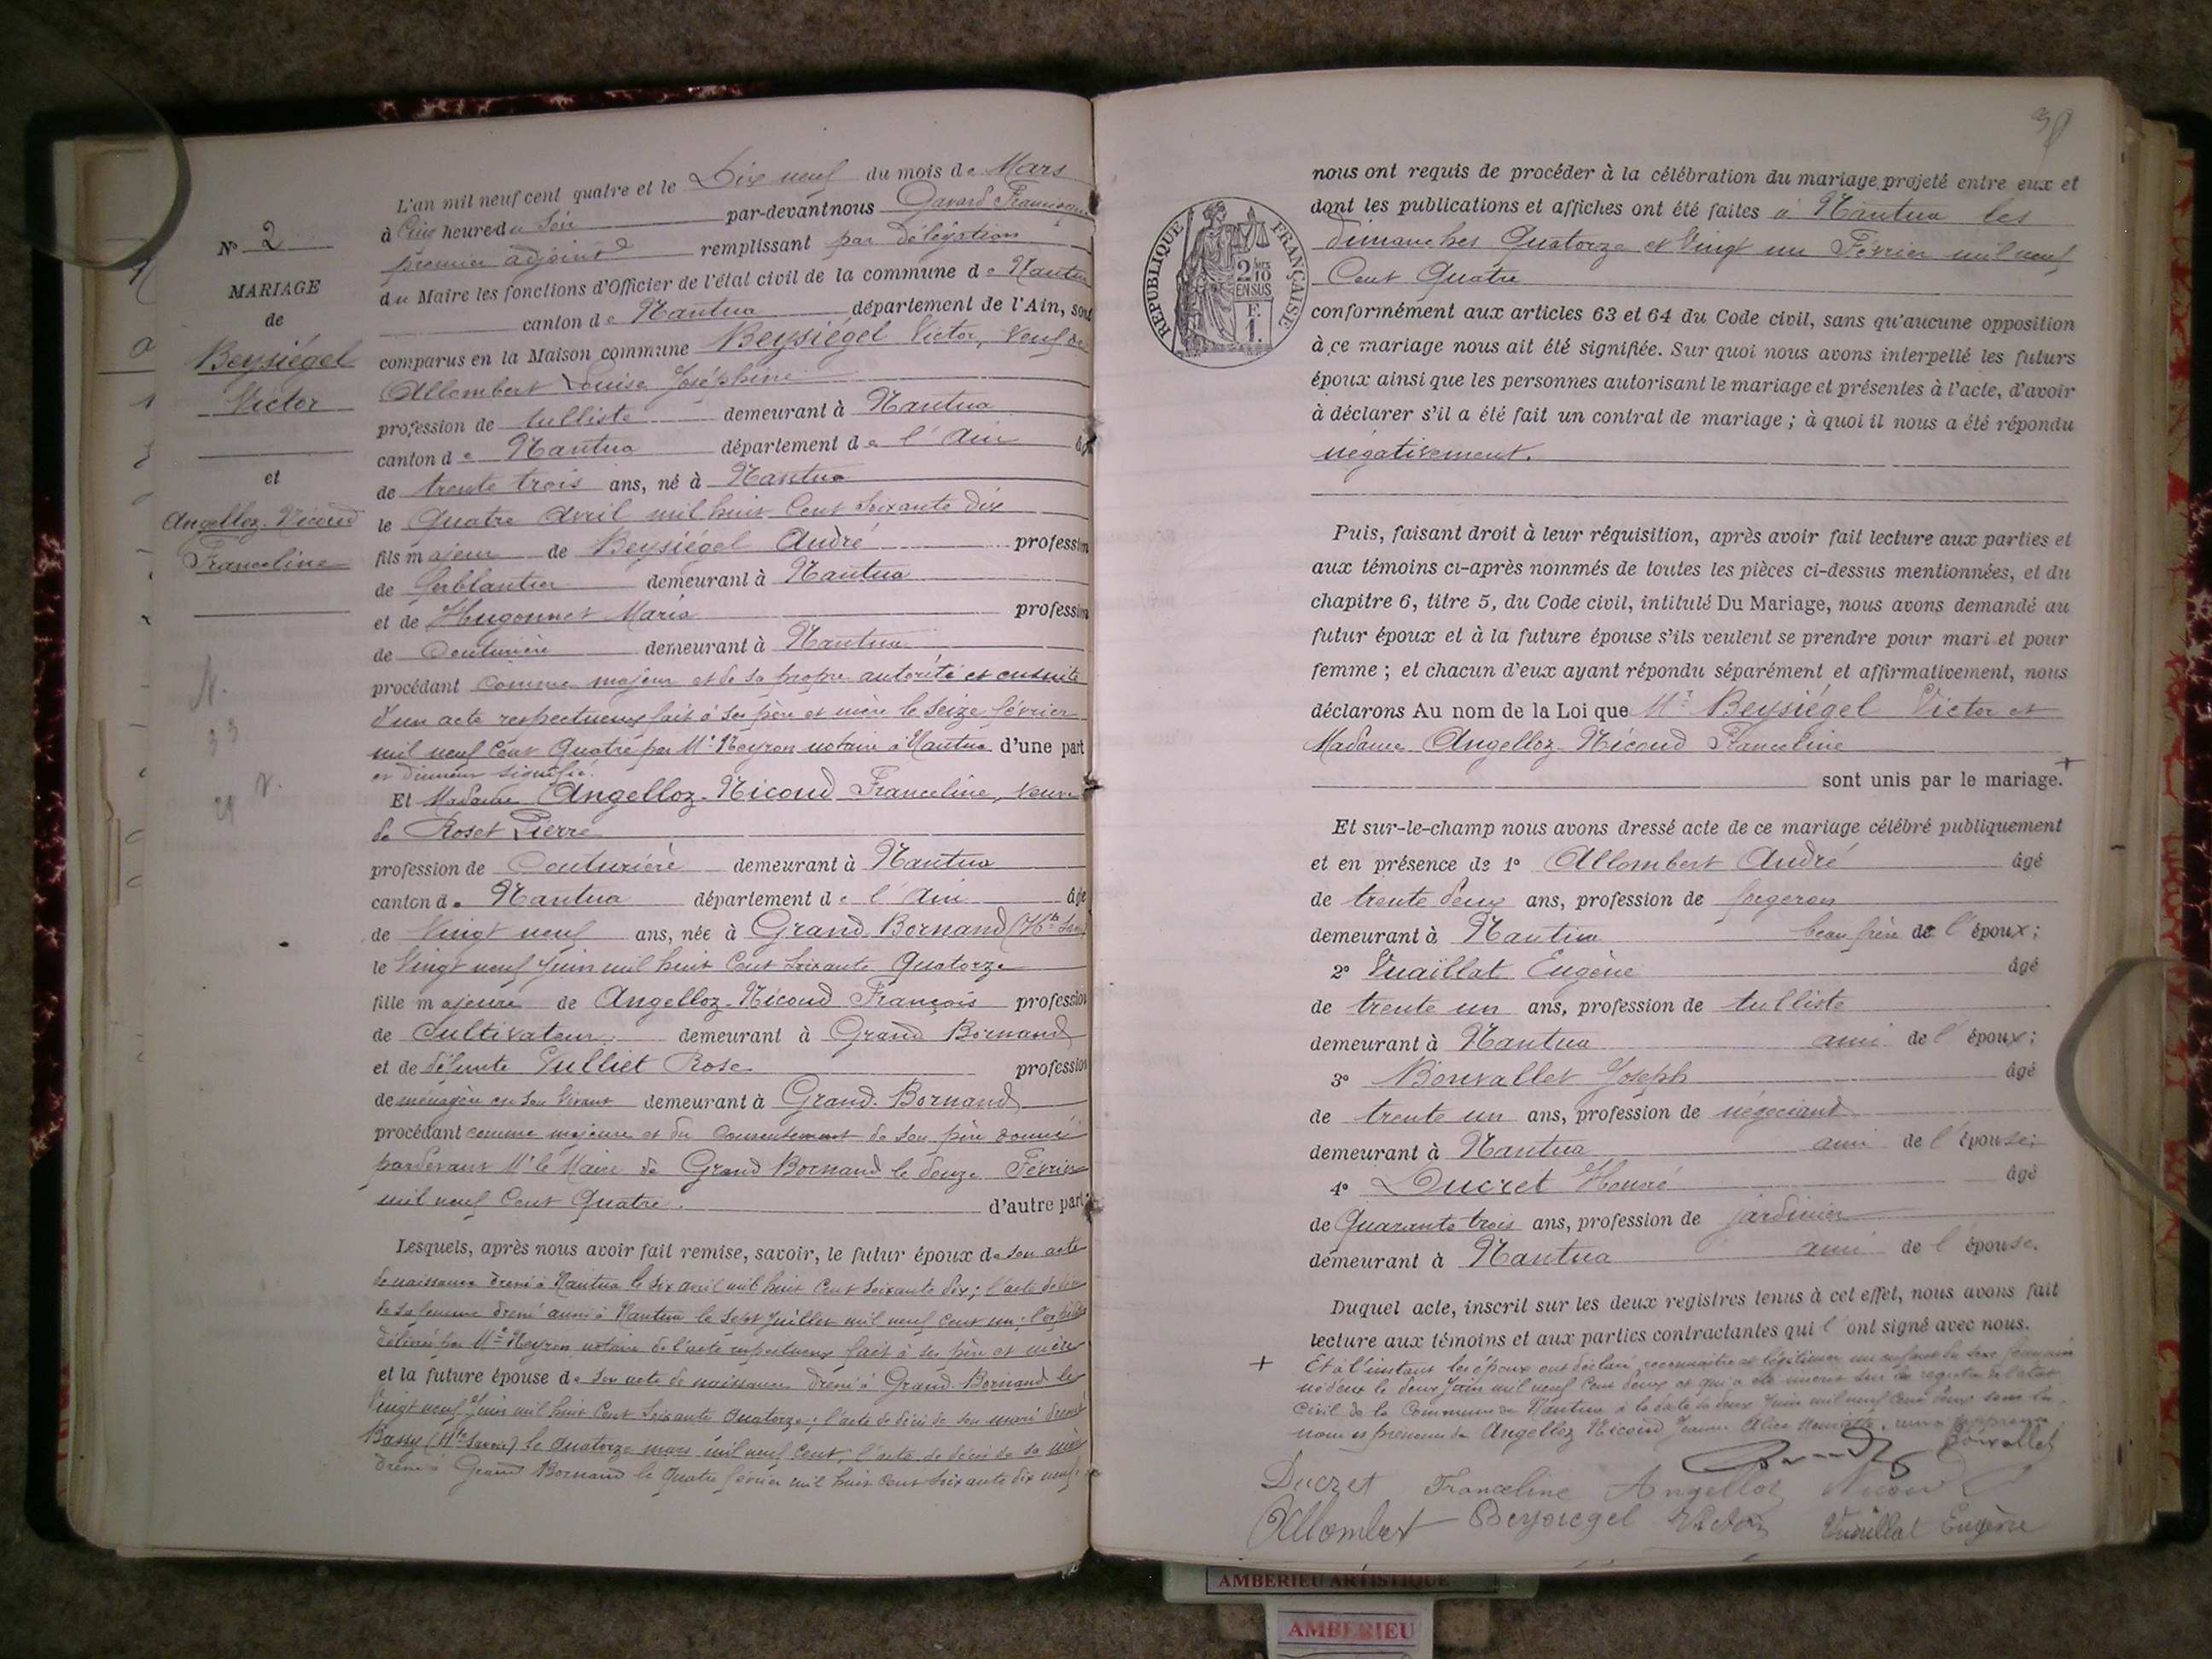 N° 2
MARIAGE
de
Beysiégel
Victor
et
Angelloz-Nicoud
Franceline
L'an mil neuf cent quatre et le Dix neuf du mois de Mars
à Cinq heures du Soir par-devant nous Gavard Francisque
premier adjoint remplissant par délégation
du Maire les fonctions d'Officier de l'état civil de la commune de Nantua
canton de Nantua département de l'Ain, sont
comparus en la Maison commune Beysiégel Victor, Veuf de
Allombert Louise Joséphine
profession de tulliste demeurant à Nantua
canton de Nantua département de l'Ain âgé
de trente trois ans, né à Nantua
le Quatre Avril mil huit Cent Soixante dix
fils majeur de Beysiégel André profession
de ferblantier demeurant à Nantua
et de Hugonnet Maria profession
de Couturière demeurant à Nantua
procédant comme majeur et de sa propre autorité et ensuite
d'un acte respectueux fait à ses père et mère le Seize février
mil neuf Cent Quatre par Me Neyron notaire à Nantua d'une part
et dûment signifié.
Et Madame Angelloz-Nicoud Franceline, Veuve
de Roset Pierre
profession de Couturière demeurant à Nantua
canton de Nantua département de l'Ain âgée
de Vingt neuf ans, née à Grand Bornand (Hte Sav)
le Vingt neuf Juin mil huit Cent Soixante Quatorze
fille majeure de Angelloz-Nicoud François profession
de Cultivateur demeurant à Grand Bornand
et de défunte Rose profession
de ménagère en son vivant demeurant à Grand-Bornand
procédant comme majeure et du consentement de son père donné
pardevant Mr le Maire de Grand Bornand le douze Février
mil neuf Cent Quatre. d'autre part
Lesquels, après nous avoir fait remise, savoir, le futur époux de son acte
de naissance dressé à Nantua le six avril mil huit Cent Soixante dix; l'acte de décès
de sa femme dressé aussi à Nantua le Sept Juillet mil neuf Cent un; l'expédition
délivrée par Me Neyron, notaire de l'acte respectueux fait à ses père et mère
et la future épouse de son acte de naissance dressé à Grand-Bornand le
Vingt neuf Juin mil huit Cent Soixante Quatorze; l'acte de décès de son mari dressé
Bassy (Hte Savoie) le Quatorze mars mil neuf Cent; l'acte de décès de sa mère
dressé à Grand Bornand le Quatre février mil huit Cent Soixante dix neuf
nous ont requis de procéder à la célébration du mariage projeté entre eux et
dont les publications et affiches ont été faites à Nantua les
dimanches Quatorze et Vingt un Février mil neuf
Cent Quatre
RÉPUBLIQUE FRANÇAISE
2/10 EN SUS
F. 1.
conformément aux articles 63 et 64 du Code civil, sans qu'aucune opposition
à ce mariage nous ait été signifiée. Sur quoi nous avons interpellé les futurs
époux ainsi que les personnes autorisant le mariage et présentes à l'acte, d'avoir
à déclarer s'il a été fait un contrat de mariage ; à quoi il nous a été répondu
négativement.
Puis, faisant droit à leur réquisition, après avoir fait lecture aux parties et
aux témoins ci-après nommés de toutes les pièces ci-dessus mentionnées, et du
chapitre 6, titre 5, du Code civil, intitulé Du Mariage, nous avons demandé au
futur époux et à la future épouse s'ils veulent se prendre pour mari et pour
femme ; et chacun d'eux ayant répondu séparément et affirmativement, nous
déclarons Au nom de la Loi que Mr Beysiégel Victor et
Madame Angelloz-Nicoud Franceline
sont unis par le mariage. +
Et sur-le-champ nous avons dressé acte de ce mariage célébré publiquement
et en présence de 1° Allombert André âgé
de trente deux ans, profession de forgeron
demeurant à Nantua beau frère de l'époux;
2° Vuaillat Eugène âgé
de trente un ans, profession de tulliste
demeurant à Nantua ami de l'époux;
3° Bonvallet Joseph âgé
de trente un ans, profession de négociant
demeurant à Nantua ami de l'épouse;
4° Ducret Honoré âgé
de Quarante trois ans, profession de jardinier
demeurant à Nantua ami de l'épouse.
Duquel acte, inscrit sur les deux registres tenus à cet effet, nous avons fait
lecture aux témoins et aux parties contractantes qui l'ont signé avec nous.
+ Et à l'instant les époux ont déclaré reconnaitre et légitimer un enfant du sexe féminin
né d'eux le deux Juin mil neuf Cent deux et qui a été inscrit sur les registres de l'état
Civil de la Commune de Nantua à la date du deux Juin mil neuf Cent deux sous les
noms et prénoms de Angelloz Nicoud Jeanne Alice
Bonvallet
Ducret Franceline Angelloz Nicoud
Allombert Beysiegel Victor Vuaillat Eugène
AMBERIEU ARTISTIQUE
AMBERIEU